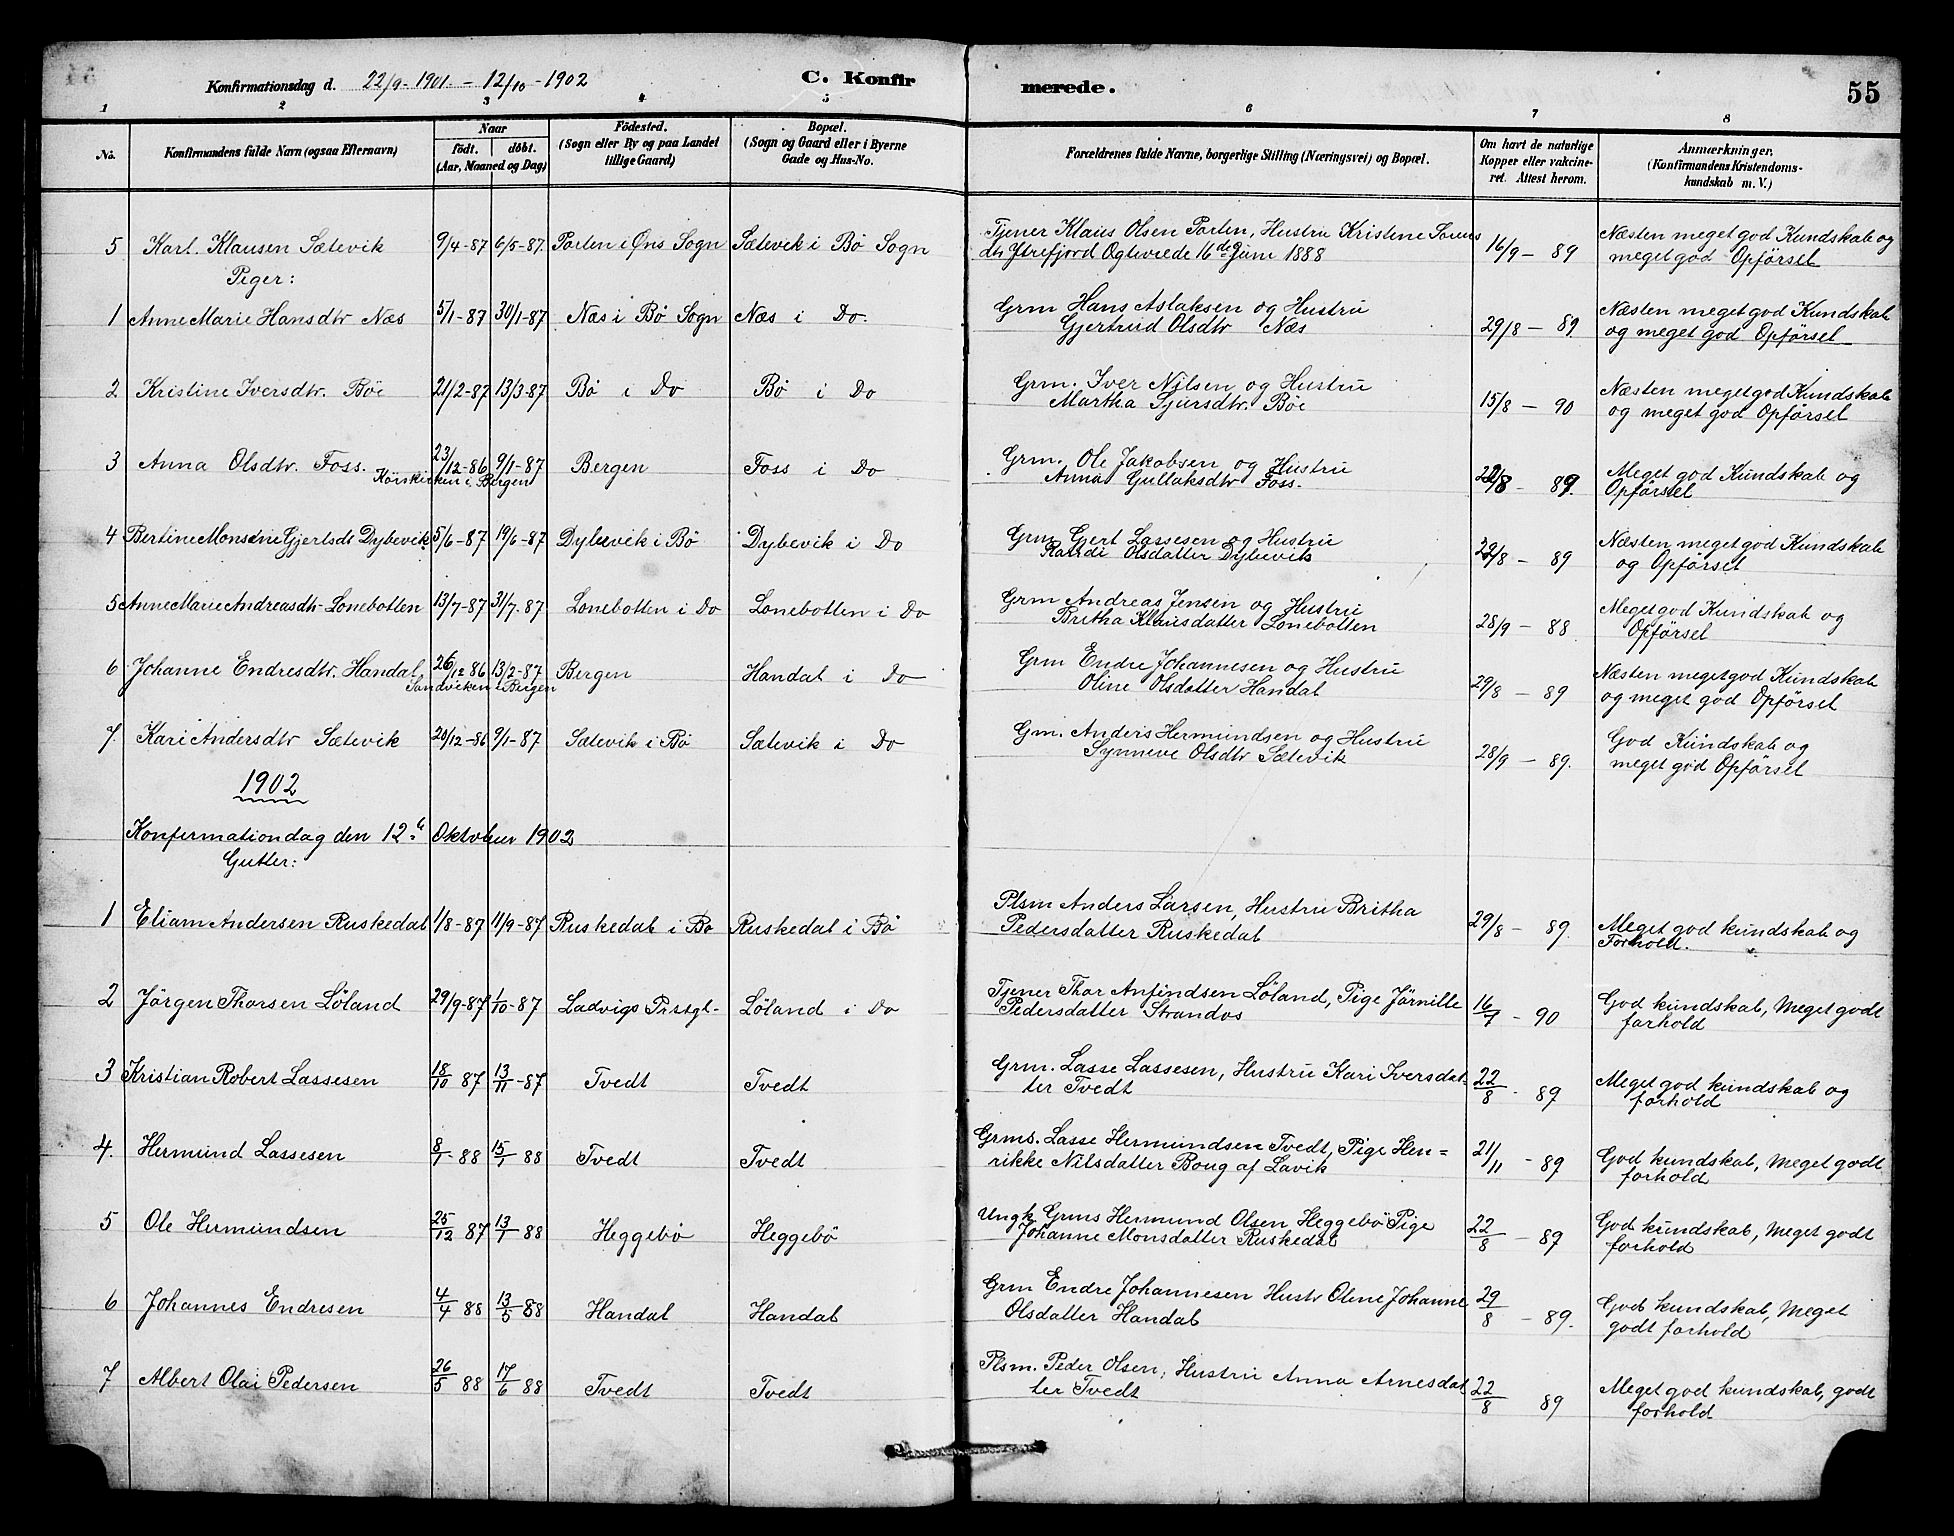 Konfirmationsdag d. 22/9-1901 - 12/10-1902
C. Konfirmerede.
55
1 2 3 4 5 6 7 8
No.
Konfirmandens fulde Navn (ogsaa Efternavn)
Naar
födt. döbt.
(Aar, Maaned og Dag)
Födested.
(Sogn eller By og paa Landet
tillige Gaard)
Bopæl.
(Sogn og Gaard eller i Byerne
Gade og Hus-No.
Forældrenes fulde Navne, borgerlige Stilling (Næringsvei) og Bopæl.
Om havt de naturlige
Kopper eller vakcine-
ret. Attest herom.
Anmærkninger,
(Konfirmandens Kristendoms-
kundskab m. V.)
5 Karl. Klausen Sætevik 9/4-87 6/5-87. Porten i Øns Sogn Sætevik i Bø Sogn
Tjener Klaus Olsen Porten, Hustru Kristine
Ytrefjord Ogteviede 16de Juni 1888
16/9 - 89
Næsten meget god Kundskab og
meget god Opførsel
Piger:
1 Anne Marie Hansdtr Næs 5/1-87 30/1-87 Næs i Bø Sogn Næs i Do.
Grm Hans Aslaksen og Hustru
Gjertrud Olsdtr Næs
29/8 - 89.
Næsten meget god Kundskab
og meget god Opførsel
2 Kristine Iversdtr. Böe 21/2-87 13/3-87 Bø i Do Bø i Do
Grm. Iver Nilsen og Hustru
Martha Sjursdtr. Böe
15/8 - 90
Næsten meget god Kundskab
og meget god Opførsel
3 Anna Olsdtr. Foss. 23/12-86 9/1-87 Bergen Foss i Do
Korskirken i Bergen
Grm. Ole Jakobsen og Hustru
Anna Gullaksdtr Foss.
- 89.
Meget god Kundskab og
Opførsel
4 Bertine Monsine Gjertsdt Dybevik 5/6-87 19/6-87 Dybevik i Bø Dybevik i Do
Grm Gjert Lassesen og Hustru
Randi Olsdatter Dybevik
22/8 - 89
Næsten meget god Kundskab
og Opførsel
5 Anne Marie Andreasdtr- Lonebotten 13/7-87 31/7-87 Lonebotten i Do Lonebotten i Do
Grm Andreas Jensen og Hustru
Britha Klausdatter Lonebotten
28/9 - 88
Meget god Kundskab og
Opførsel
6 Johanne Endresdtr. Handal 26/12 86 13/2-87 Bergen Handal i Do
Sandviken i Bergen
Grm Endre Johannesen og Hustru
Oline Olsdatter Handal
29/8 - 89
Næsten meget god Kundskab
og meget god Opførsel
7. Kari Andersdtr Sætevik 20/12-86 9/1-87 Sætevik i Bø Sætevik i Do
Gm. Anders Hermundsen og Hustru
Synneve Olsdtr Sætevik
28/9 - 89.
God Kundskab og
meget god Opførsel
1902
Konfirmationdag den 12te Oktober 1902
Gutter:
1 Eliam Andersen Ruskedal 1/8-87 11/9-87 Ruskedal i Bø Ruskedal i Bø
Plsm Anders Larsen, Hustru Britha
Pedersdatter Ruskedal
29/8 - 89.
Meget god kundskab og
Forhold.
2 Jörgen Thorsen Löland 29/9-87 1/10-87 Ladvigs Prstgl- Löland i Do
Tjener Thor Anfindsen Löland, Pige Jörnille
Pedersdatter Strandos
16/7 - 90
God kundskab, Meget godt
forhold
3 Kristian Robert Lassesen 18/10 87 13/11-87 Tvedt Tvedt
Grm. Lasse Lassesen, Hustru Kari Iversdat-
ter Tvedt
22/8 - 89
Meget god kundskab og
forhold
4. Hermund Lassesen 8/1-88 15/1 88 Tvedt Tvedt
Grms. Lasse Hermundsen Tvedt, Pige Hen=
rikke Nilsdatter Boug af Lavik
21/11 - 89
God kundskab, Meget godt
forhold
5 Ole Hermundsen 25/12 87 13/1 88 Heggebö Heggebö
Ungk. Grms Hermund Olsen Heggebö Pige
Johanne Monsdatter Ruskedal
22/8 - 89
God kundskab, Meget godt
forhold
6 Johannes Endresen 4/4 88 13/5 88 Handal Handal
Grm Endre Johannesen Hustr Oline Johanne
Olsdatter Handal
29/8 - 89.
God kundskab, Meget
godt forhold
7 Albert Olai Pedersen 26/5 88 17/6 88 Tvedt Tvedt
Plsm. Peder Olsen, Hustru Anna Arnesdat
ter Tvedt
22/8 89
Meget god kundskab, godt
forhold